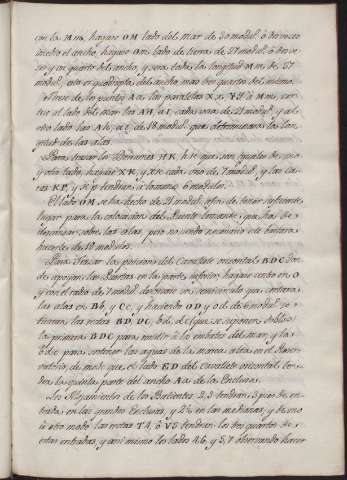 con la Mm, hagase OM lado del Mar de 30 modul. ó de vez
y medio el ancho, hagase Om, lado de tierra de 27 modul. ó de vez
y un quarto del ancho, y sera toda la longitud Mm de 57
modul. esto es quadrupla del ancho mas tres quartos del mismo.
Tirese de los puntos Aa, las paralelas Xx, YZ à Mm, cor-
tar al lado del Mar los AH, a I, cada una de 21 modul. y al
otro lado las Ah, a i, de 18 modul. que determinaran la lon-
gitud de las alas.
Para trazar los Derrames HK, hk que son iguales de uno
y otro lado, hagase XK, y xk cada uno de 7 modul. y las ca-
ras KP, y kp tendran a lo menos 6 modulos.
El lado OM se ha hecho de 21 modul. afin de tener suficiente
lugar para la colocacion del Puente tornante, que ha de
descansar sobre las alas, pero no siendo necesario este bastara
hacerle de 18 modulos.
Para trazar la posicion del Cavallete orizontal BDC don-
de apoyan las Puertas en la parte inferior, hagase centro en O
y con el radio de 7 modul. descrivase un semicirculo que cortara
las alas en Bb, y Cc, y haciendo OD y od de 6 modul. se
tiraran las rectas BD, DC, bd, dc que se suponen dobles
la primera BDC para resistir à los embates del mar, y la
bdc para sostener las aguas de la marea alta en el Reser-
vatorio, de modo que el lado ED del Cavallete orizontal ten-
dra la quinta parte del ancho Aa de la Esclusa.
Los Alojamientos de los Batientes 2,3 tendran 3 pies de en-
trada, en las grandes Esclusas, y 2½ en las medianas, y de uno
û otro modo las rectas T4, ô V5 tendran los dos quartos de
estas entradas, y asi mismo los lados 4,6, y 5,7 observando hacer